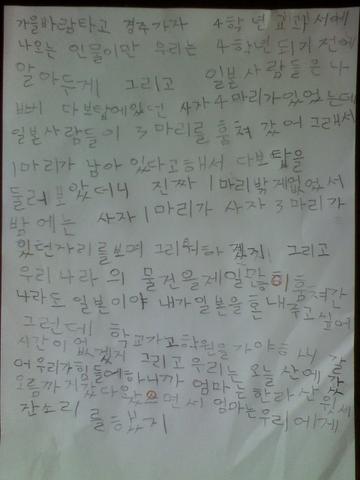 가을바람타고 경주가자 4학년교과서에
나오는 인물이만 우리는 4학년되기전에
알아두게 그리고 일본사람들은나
뻐 다보탑에있던 사자4마리가있었는데
일본사람들이 3마리를훔쳐갔어그래서
1마리가 남아있다고해서 다보탑을
둘러보았더니 진짜1마리밖게없었서
밤에는 사자1마리가 사자3마리가
있던자리를보며 그리워하겠지 그리고
우리나라의 물건을제일많이훔쳐간
나라도 일본이야 내가일본을혼내주고싶어
그런데 학교가고학원을가야해서 갈
시간이없겠게 그리고우리는오늘산에갔
어우리가힘들어하니까 엄마는한라산윗세
오름까지갔다왔으면서 엄마는우리에게
잔소리를했지